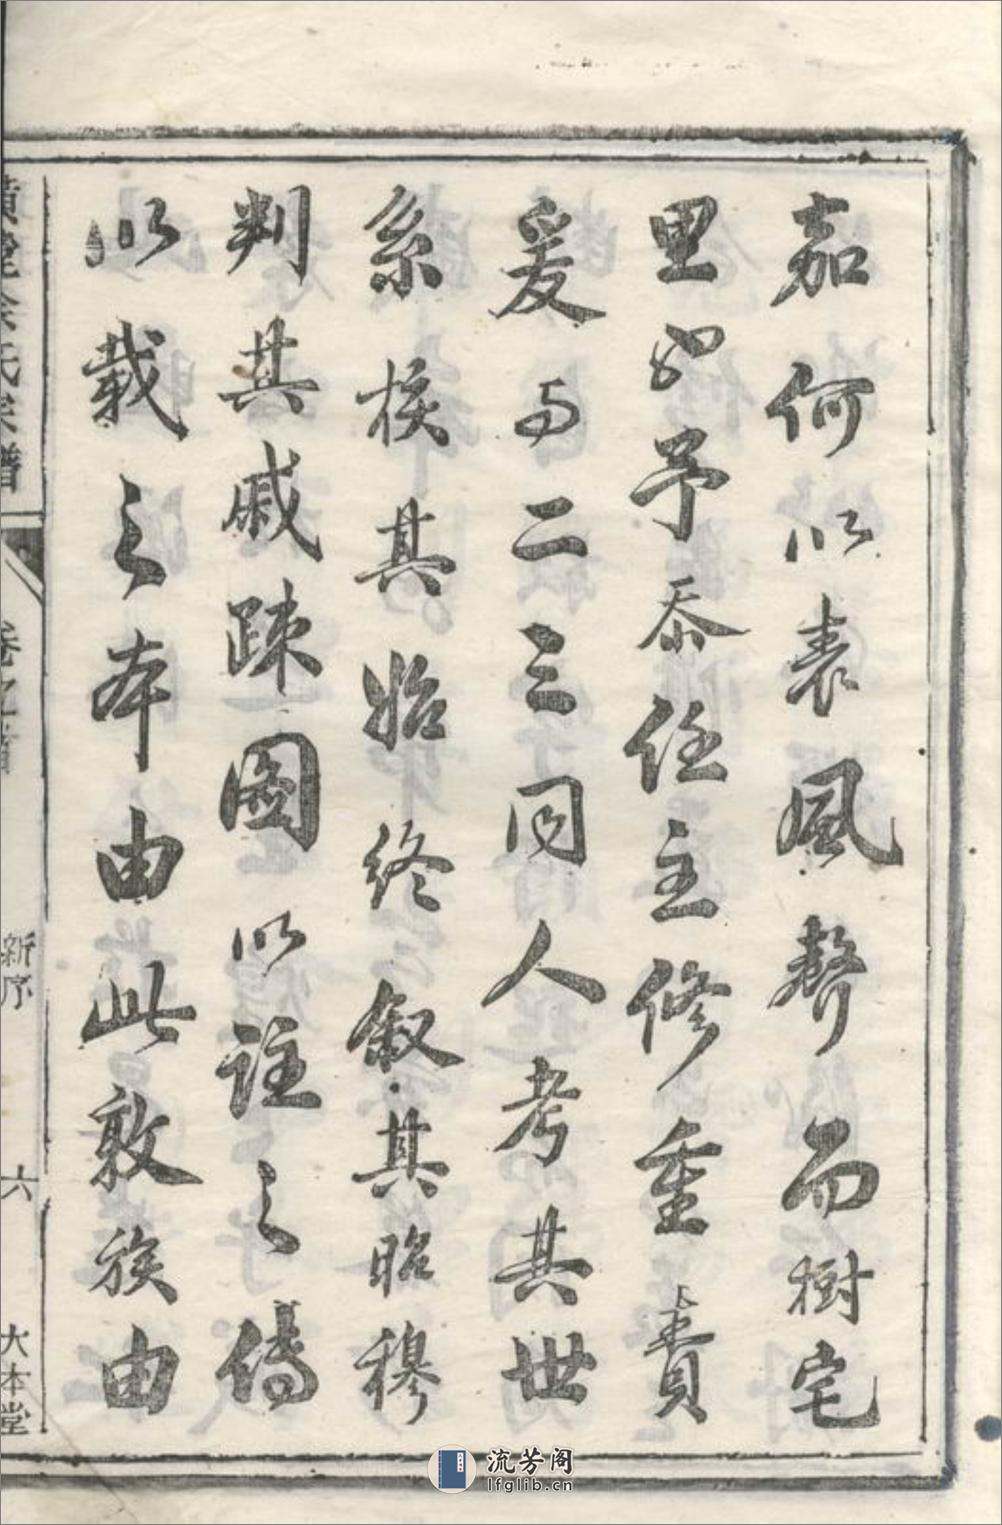 嘉何以表風聲而樹宅
里也予忝任主修重責
爰与二三同人考其世
系核其始終叙其昭穆
判其戚疎圖以註之傳
以載之本由此敦族由
氏族譜
新序
六
大本堂
流芳阁
lfglib.cn